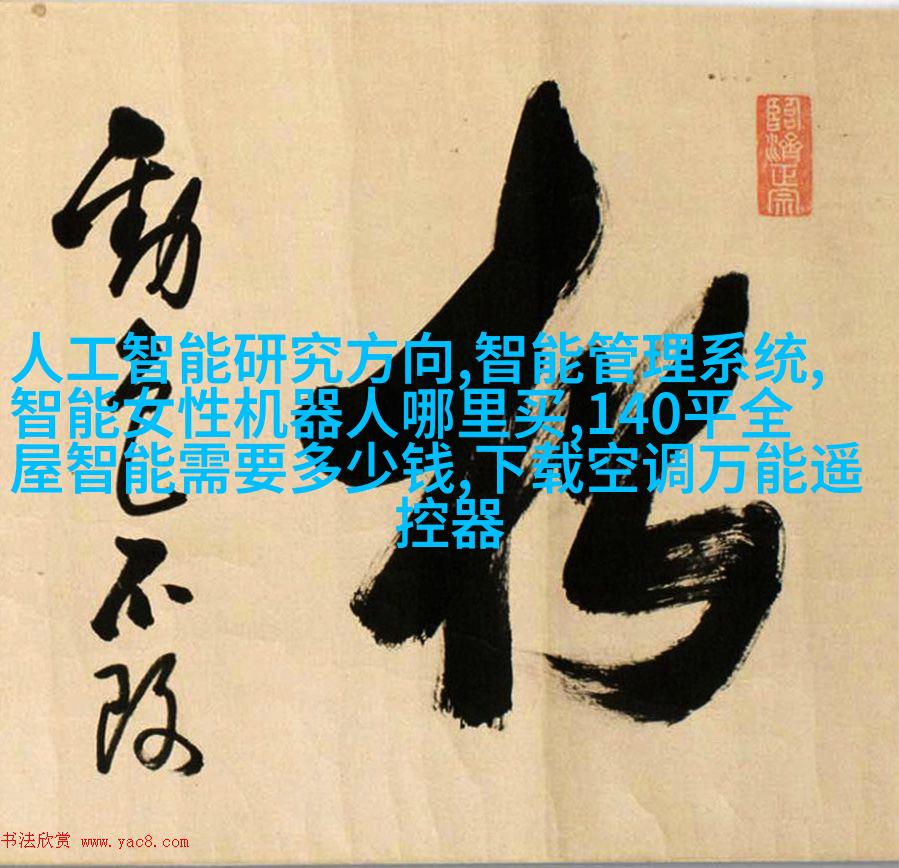 臨濟正宗
松
勁色不改
人工智能研究方向,智能管理系统,
智能女性机器人哪里买,140平全
屋智能需要多少钱,下载空调万能遥
控器
书法欣赏 www.yac8.com